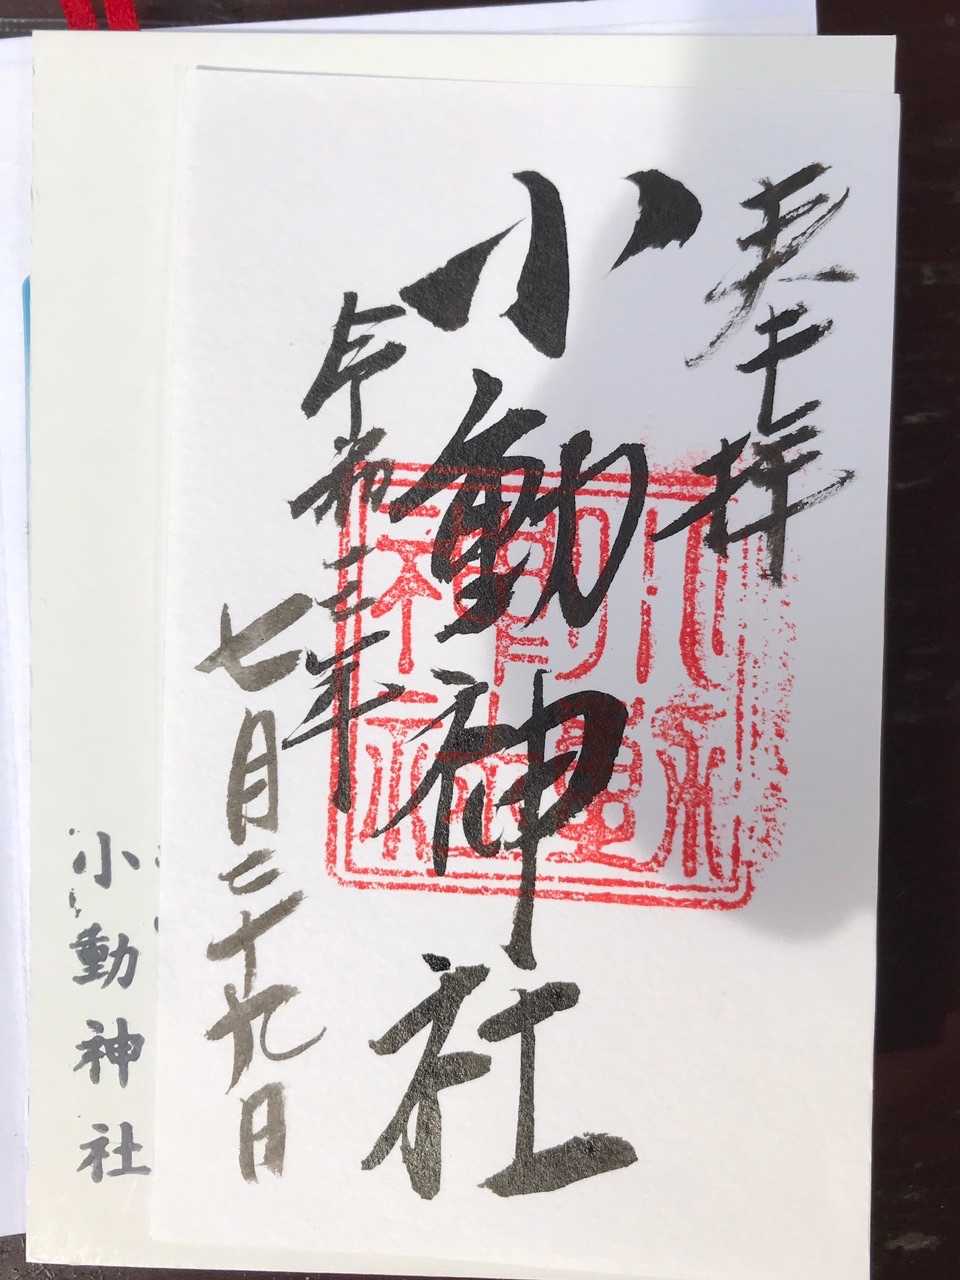 奉拝
小動神社
令和三年
七月二十九日
小動神社